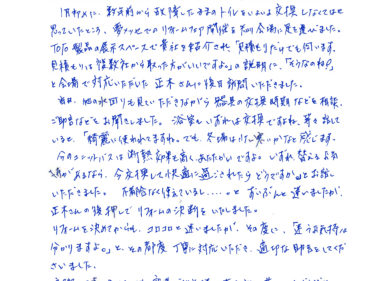 1月初めに、数年前から故障していたトイレをいよいよ交換しなくてはと
思っていたところ、夢メッセでのリフォームフェア開催を知り会場に足を運びました。
TOTO製品の展示スペースで貴社を紹介され「見積もりだけでも伺います。
見積もりは複数社から取った方がいいですよ。」の説明に、「そうなの和?」
と会場で対応いただいた正木さんに後日訪問いただきました。
当日、他の水回りも見ていただきながら器具の交換時期などを相談、
ご助言などもお聞きしました。浴室もいずれは交換ですね、等々話して
いると、「綺麗に使われてますね。でも、冬場は寒いかなと感じます。
今のユニットバスは断熱効果も高く、あたたかいですよ。いずれ替えるお気
持があるなら、今交換して快適に過ごされたらどうですか。」とお話
いただきました。不具合なく使えているし.....。と ずいぶんと迷いましたが、
正木さんの後押しでリフォームの決断をいたしました。
リフォームを決めてからも、コロコロと迷いましたが、その度に、「迷うお気持は
分かりますよ。」と、その都度丁寧に対応いただき、適切な助言をしてくだ
さいました。